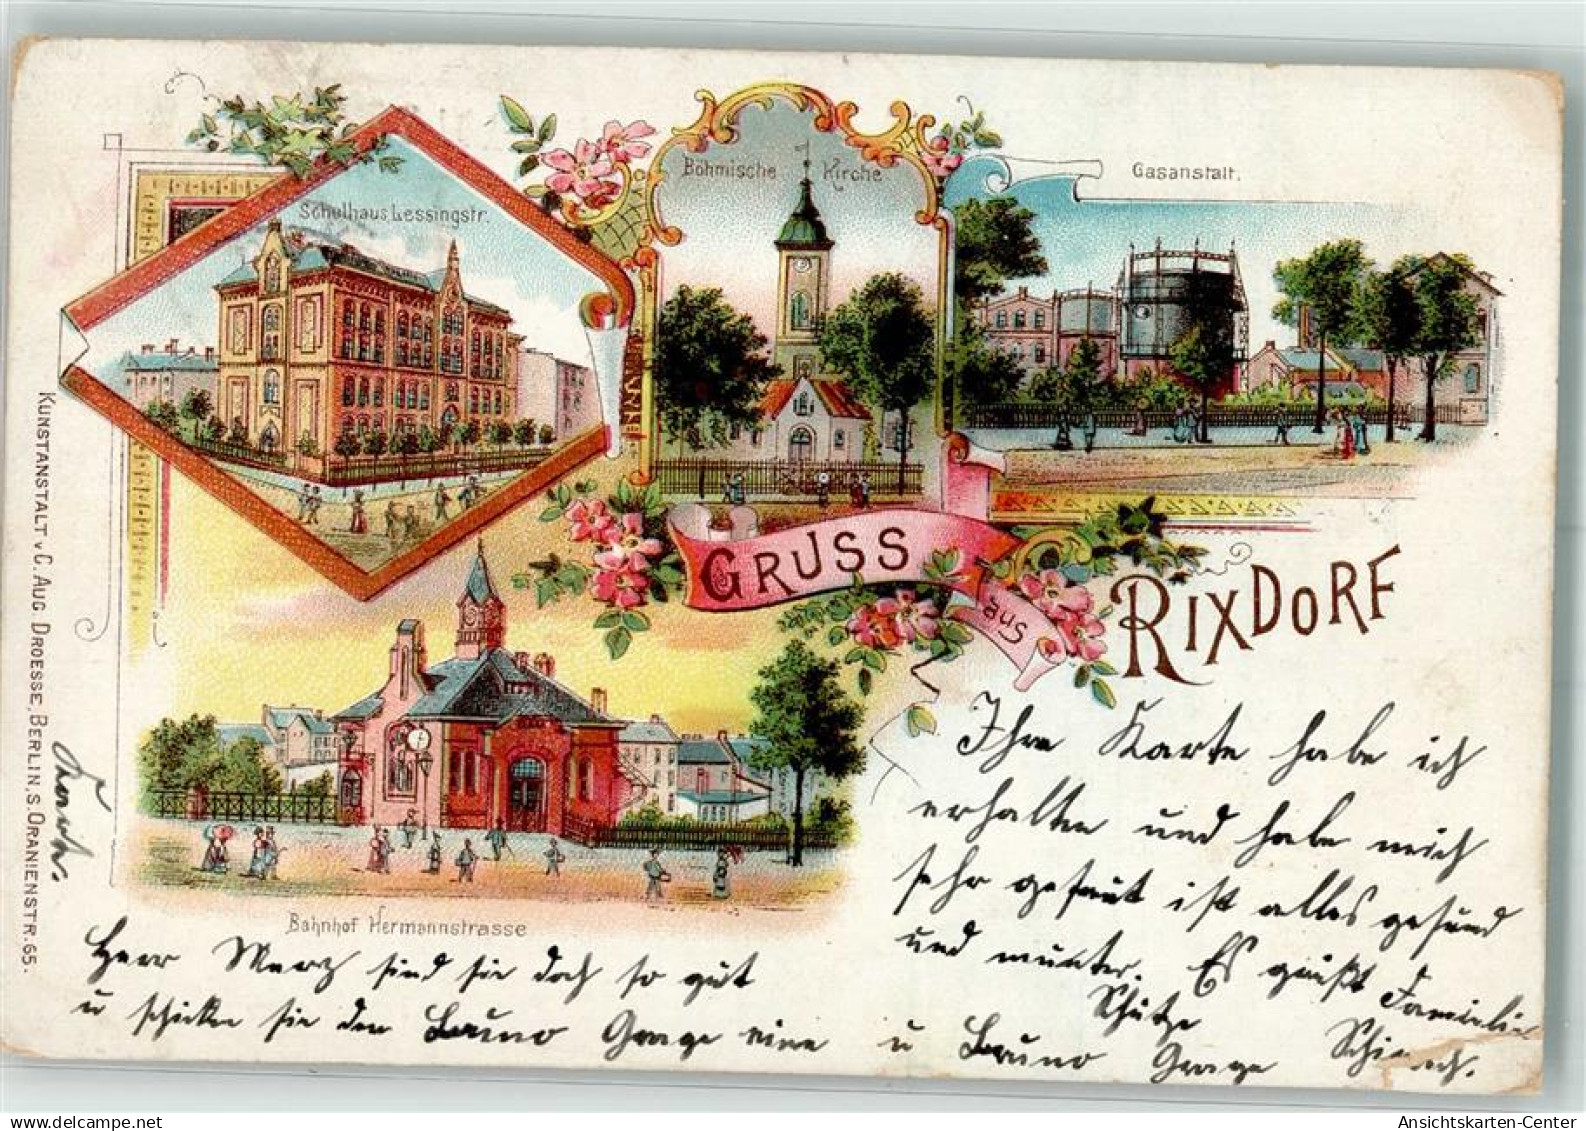 Schulhaus Lessingstr.
Böhmische Kirche
Gasanstalt.
GRUSS
aus
RIXDORF
Bahnhof Hermannstrasse
KUNSTANSTALT v C. AUG DROESSE, BERLIN, S. ORANIENSTR. 65.
Ihre Karte habe ich
erhalten und habe mich
sehr gefreut ist alles gesund
und munter. Es grüßt Familie
Schütze
u Bruno
Herr Merz sind sie doch so gut
u schicken sie den Bruno
eine
Karte.
Ansichtskarten-Center